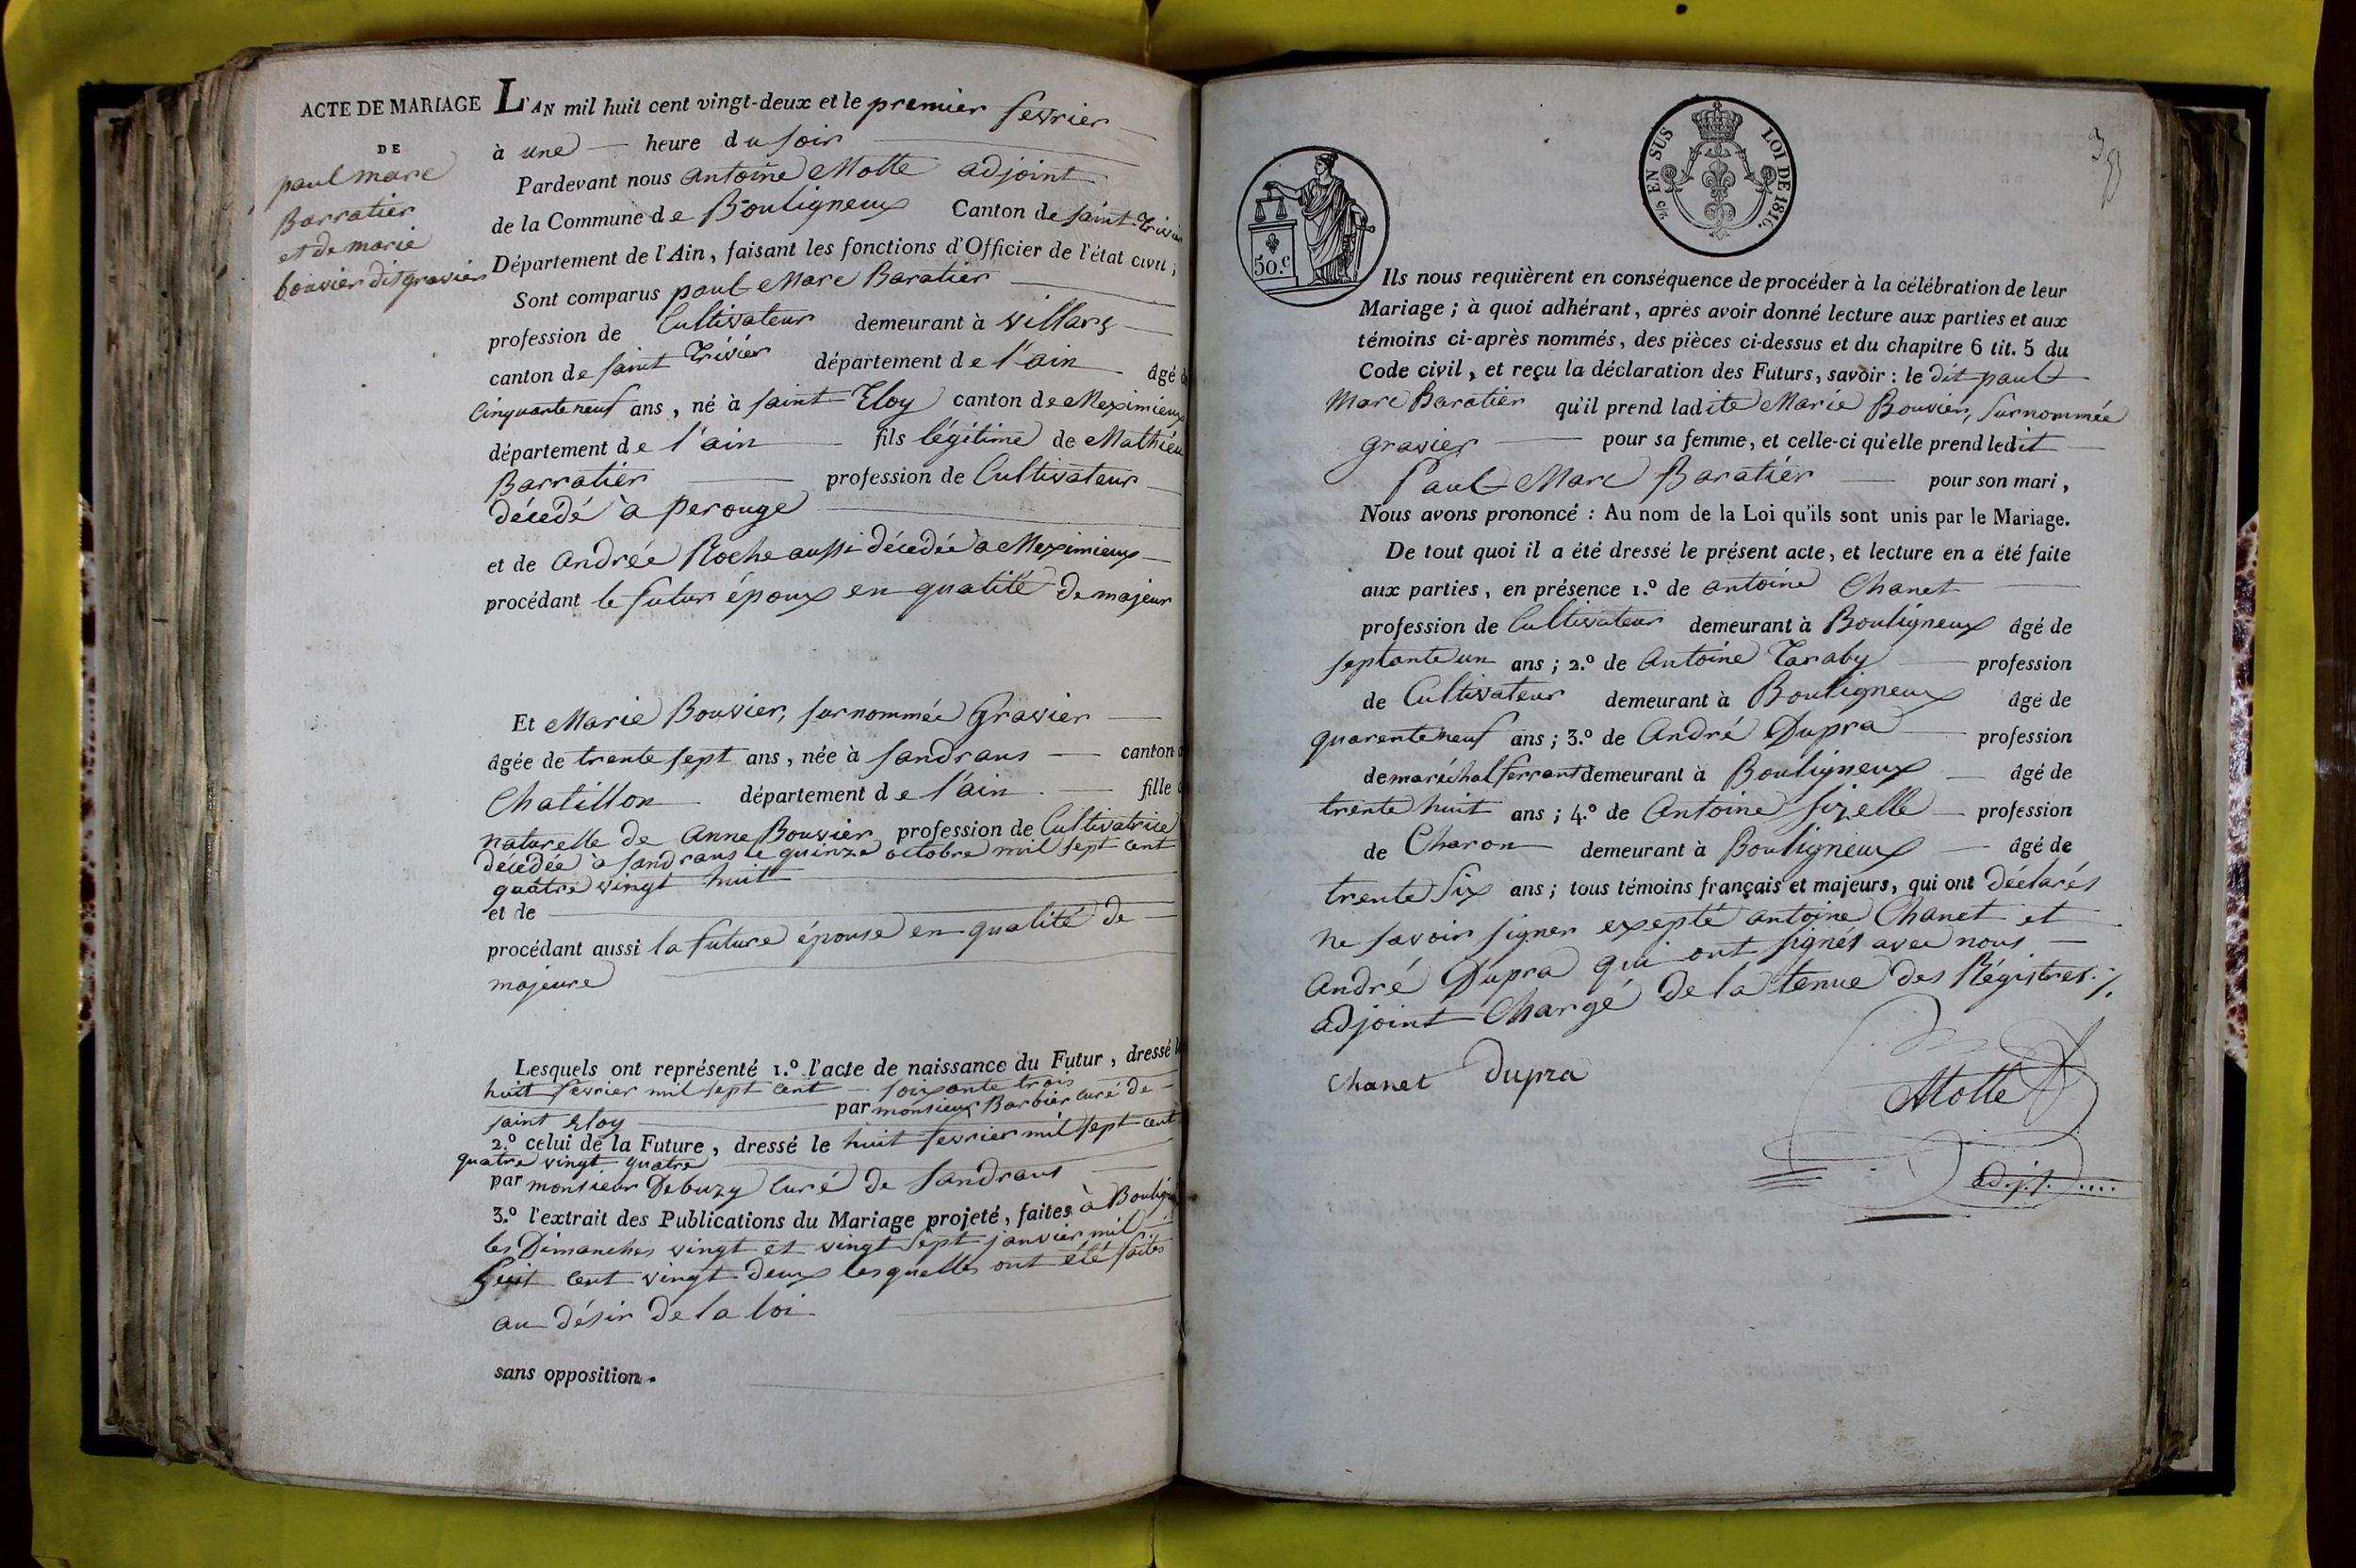 ACTE DE MARIAGE
DE
paul marc
Barratier
et de marie
bouvier dit gravier
L'AN mil huit cent vingt-deux et le premier fevrier
à une heure du soir
Pardevant nous antoine Motte adjoint
de la Commune de Bouligneux Canton de saint-Trivier
Département de l'Ain, faisant les fonctions d'Officier de l'état civil;
Sont comparus paul Marc Baratier
profession de Cultivateur demeurant à villars
canton de saint Trivier département de l'ain âgé de
Cinquante neuf ans, né à saint Eloy canton de Meximieux
département de l'ain fils légitime de Mathieu
Barratier profession de Cultivateur
décedé à perouge
et de andrée Roche aussi décedée a Meximieux
procédant le futur époux en qualité de majeur
Et Marie Bouvier, surnommée Gravier
âgée de trente sept ans, née à sandrans canton de
Chatillon département de l'ain fille
naturelle de anne Bouvier profession de Cultivatrice
décedée à sandrans le quinze octobre mil sept cent
quatre vingt huit
et de
procédant aussi la future épouse en qualité de
majeure
Lesquels ont représenté 1.º l'acte de naissance du Futur, dressé le
huit fevrier mil sept cent soixante trois
par monsieur Barbier curé de
saint Eloy
2.º celui de la Future, dressé le huit fevrier mil sept cent
quatre vingt quatre
par monsieur Debuzy Curé de sandrans
3.º l'extrait des Publications du Mariage projeté, faites à Bouligneux
les Dimanches vingt et vingt sept janvier mil
huit cent vingt deux lesquelles ont été faites
au désir de la loi
sans opposition.
EN SUS
LOI DE 1816.
50.c
Ils nous requièrent en conséquence de procéder à la célébration de leur
Mariage; à quoi adhérant, après avoir donné lecture aux parties et aux
témoins ci-après nommés, des pièces ci-dessus et du chapitre 6 tit. 5 du
Code civil, et reçu la déclaration des Futurs, savoir: le dit paul
Marc Baratier qu'il prend ladite Marie Bouvier, surnommée
gravier pour sa femme, et celle-ci qu'elle prend ledit
Paul Marc Baratier pour son mari,
Nous avons prononcé: Au nom de la Loi qu'ils sont unis par le Mariage.
De tout quoi il a été dressé le présent acte, et lecture en a été faite
aux parties, en présence 1.º de antoine Chanet
profession de Cultivateur demeurant à Bouligneux âgé de
septante un ans; 2.º de Antoine Taraby profession
de Cultivateur demeurant à Bouligneux âgé de
quarente neuf ans; 3.º de André Dupra profession
de maréchal ferrant demeurant à Bouligneux âgé de
trente huit ans; 4.º de Antoine Sizelle profession
de Charon demeurant à Bouligneux âgé de
trente six ans; tous témoins français et majeurs, qui ont déclarés
ne savoir signer expepté antoine Chanet et
André Dupra qui ont signés avec nous
adjoint Chargé de la tenue des Régistres
Chanet Dupra
Motte
adjt.